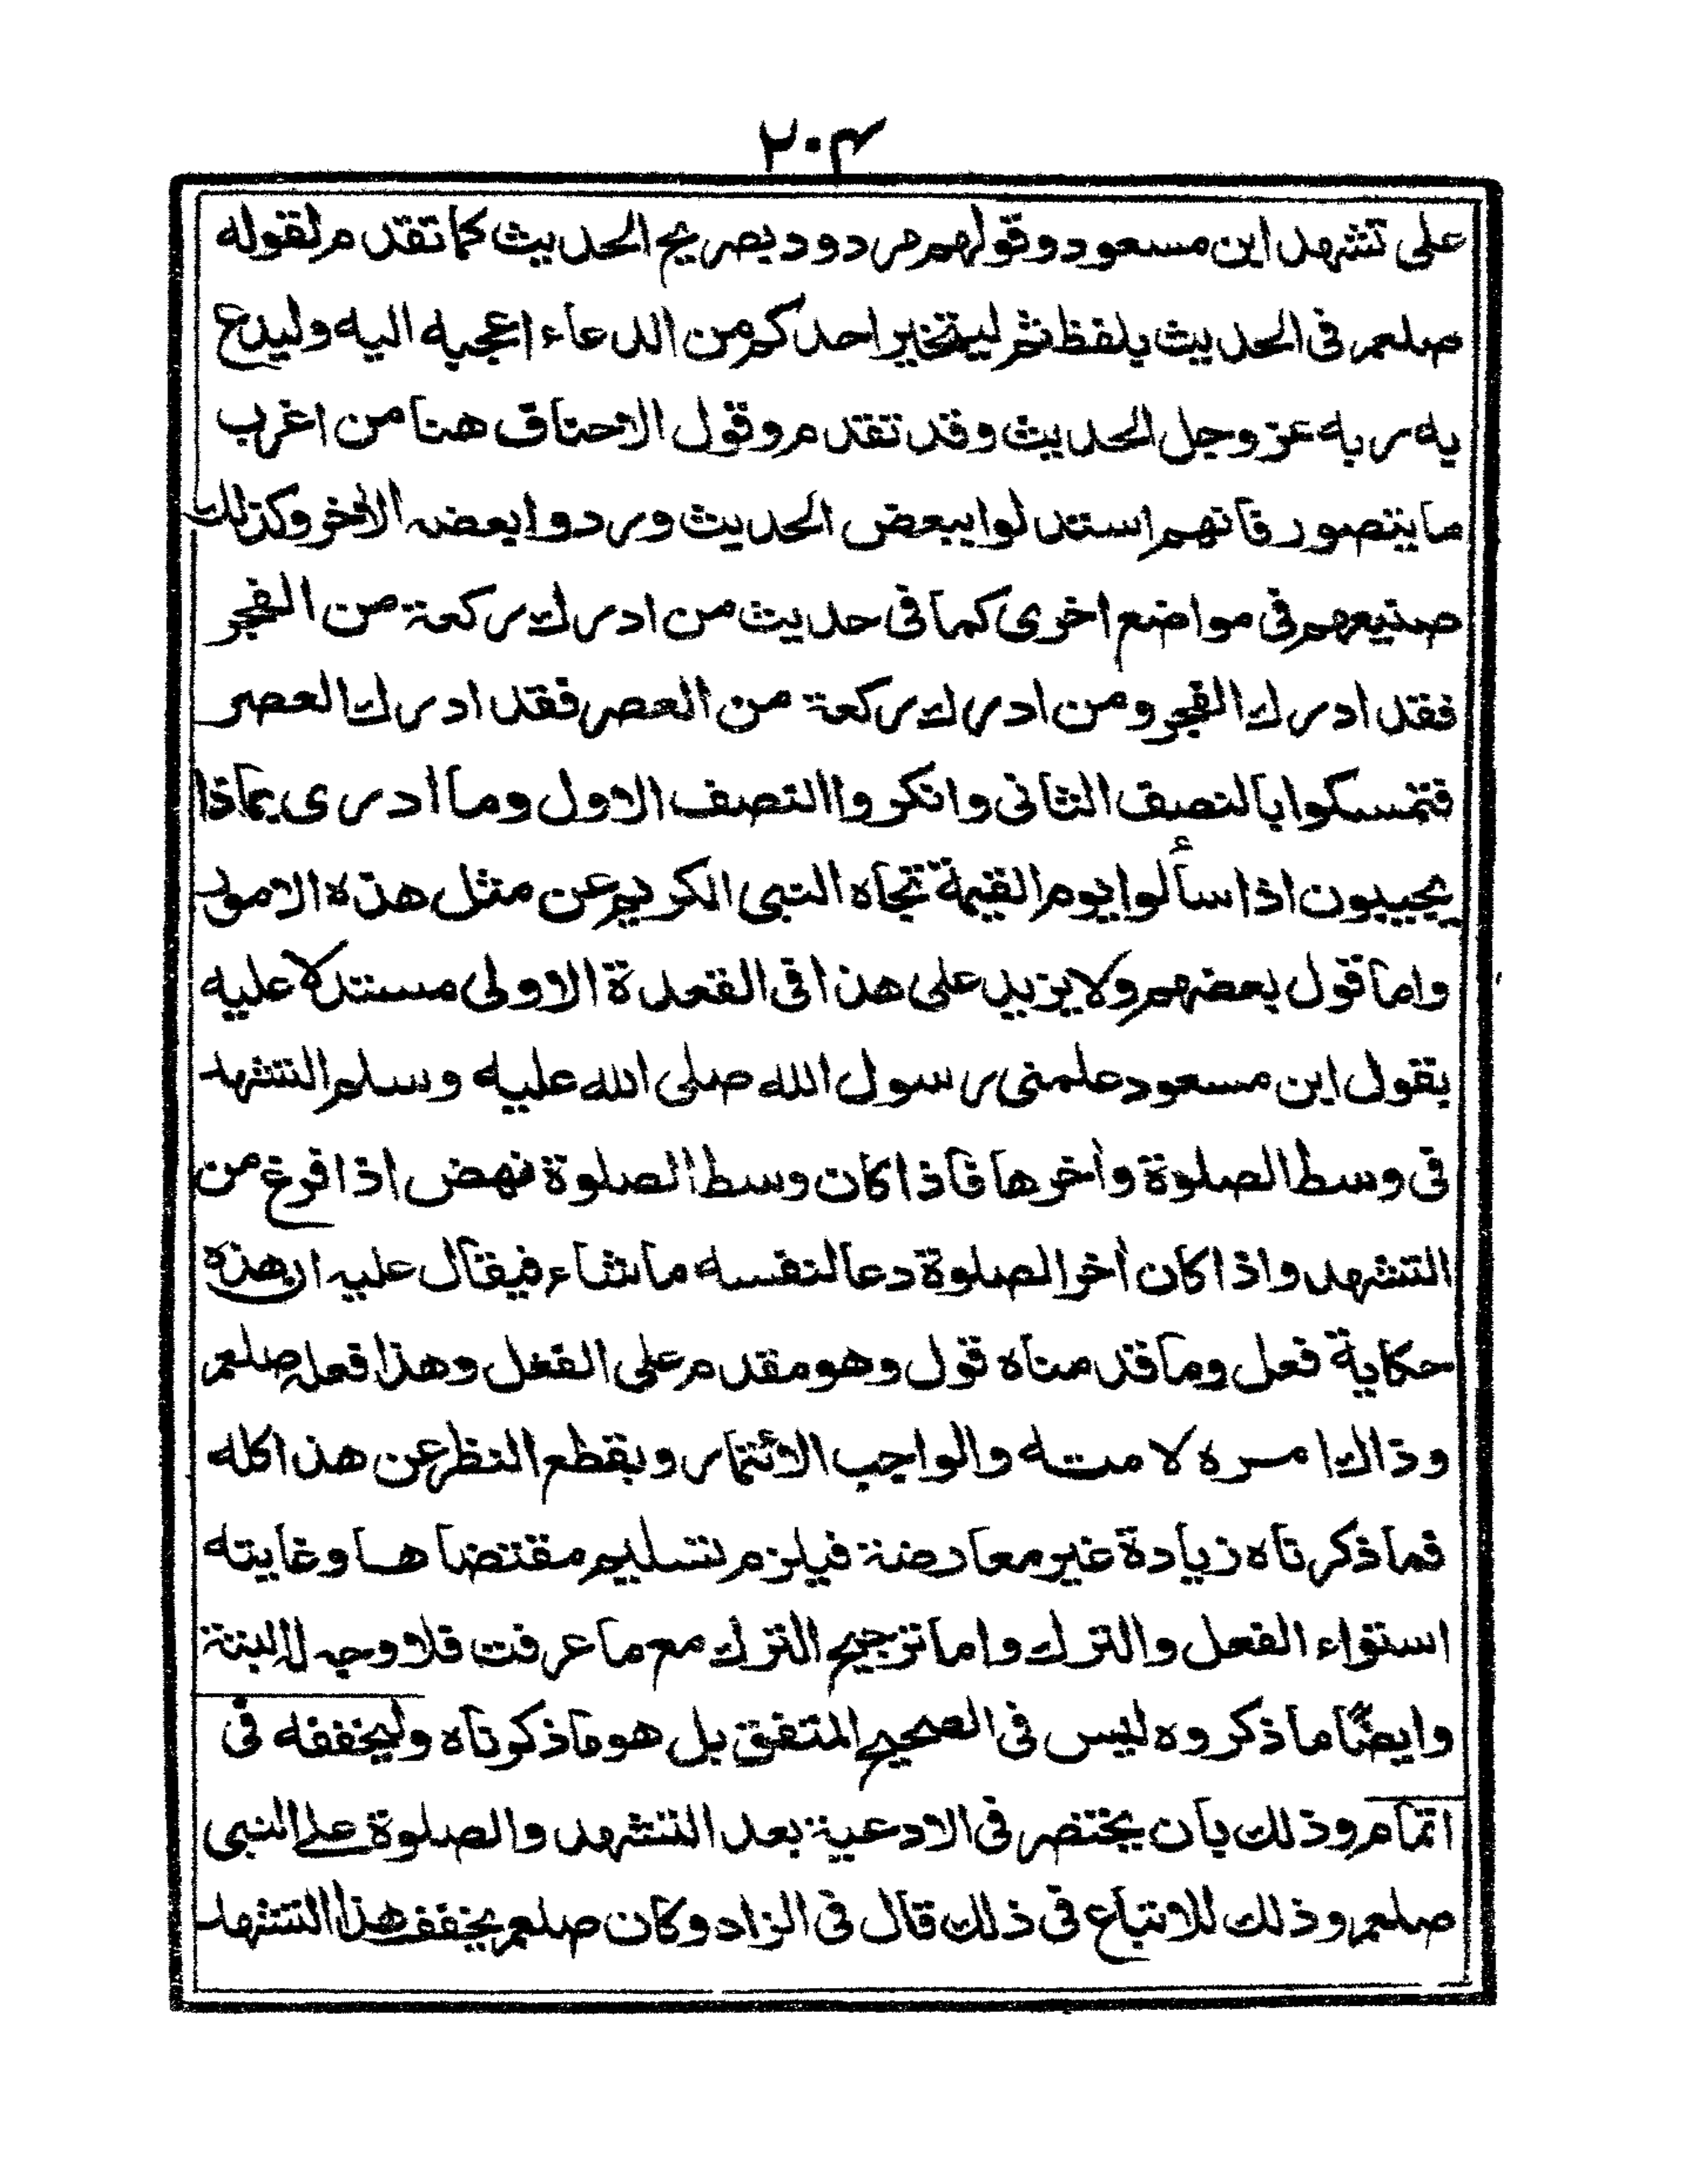 ٢٠٤
على تشهد ابن مسعود وقولهم مردود بصريح الحديث كما تقدم لقوله
صلعم فى الحديث بلفظ ثم ليتخير احدكم من الدعاء اعجبه اليه وليدع
به ربه عز وجل الحديث وقد تقدم وقول الاحناف هنا من اغرب
ما يتصور فانهم استدلوا ببعض الحديث وردوا بعضه الآخر وكذلك
صنيعهم فى مواضع اخرى كما فى حديث من ادرك ركعة من الفجر
فقد ادرك الفجر ومن ادرك ركعة من العصر فقد ادرك العصر
فتمسكوا بالنصف الثانى وانكروا النصف الاول وما ادرى بماذا
يجيبون اذا سألوا يوم القيمة تجاه النبى الكريم عن مثل هذه الامور
واما قول بعضهم ولا يزيد على هذا فى القعدة الاولى مستدلا عليه
بقول ابن مسعود علمنى رسول الله صلى الله عليه وسلم التشهد
فى وسط الصلوة وأخرها فاذا كان وسط الصلوة نهض اذا فرغ من
التشهد واذا كان أخر الصلوة دعا لنفسه ما شاء فيقال عليه ان هذه
حكاية فعل وما قدمناه قول وهو مقدم على الفعل وهذا فعله صلعم
وذاك امره لامته والواجب الائتمار وبقطع النظر عن هذا كله
فما ذكرناه زيادة غير معارضة فيلزم تسليم مقتضاها وغايته
استواء الفعل والترك واما ترجيح الترك مع ما عرفت فلا وجه له البتة
وايضًا ما ذكروه ليس فى الصحيح المتفق بل هو ما ذكرناه وليخففه فى
اتمام وذلك بان يختصر فى الادعية بعد التشهد والصلوة على النبى
صلعم وذلك للاتباع فى ذلك قال فى الزاد وكان صلعم يخفف هذا التشهد